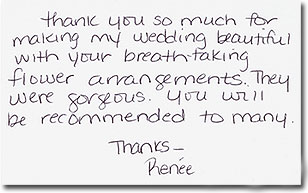 thank you so much for
making my wedding beautiful
with your breath-taking
flower arrangements. They
were gorgeous. You will
be recommended to many.
Thanks –
Renée